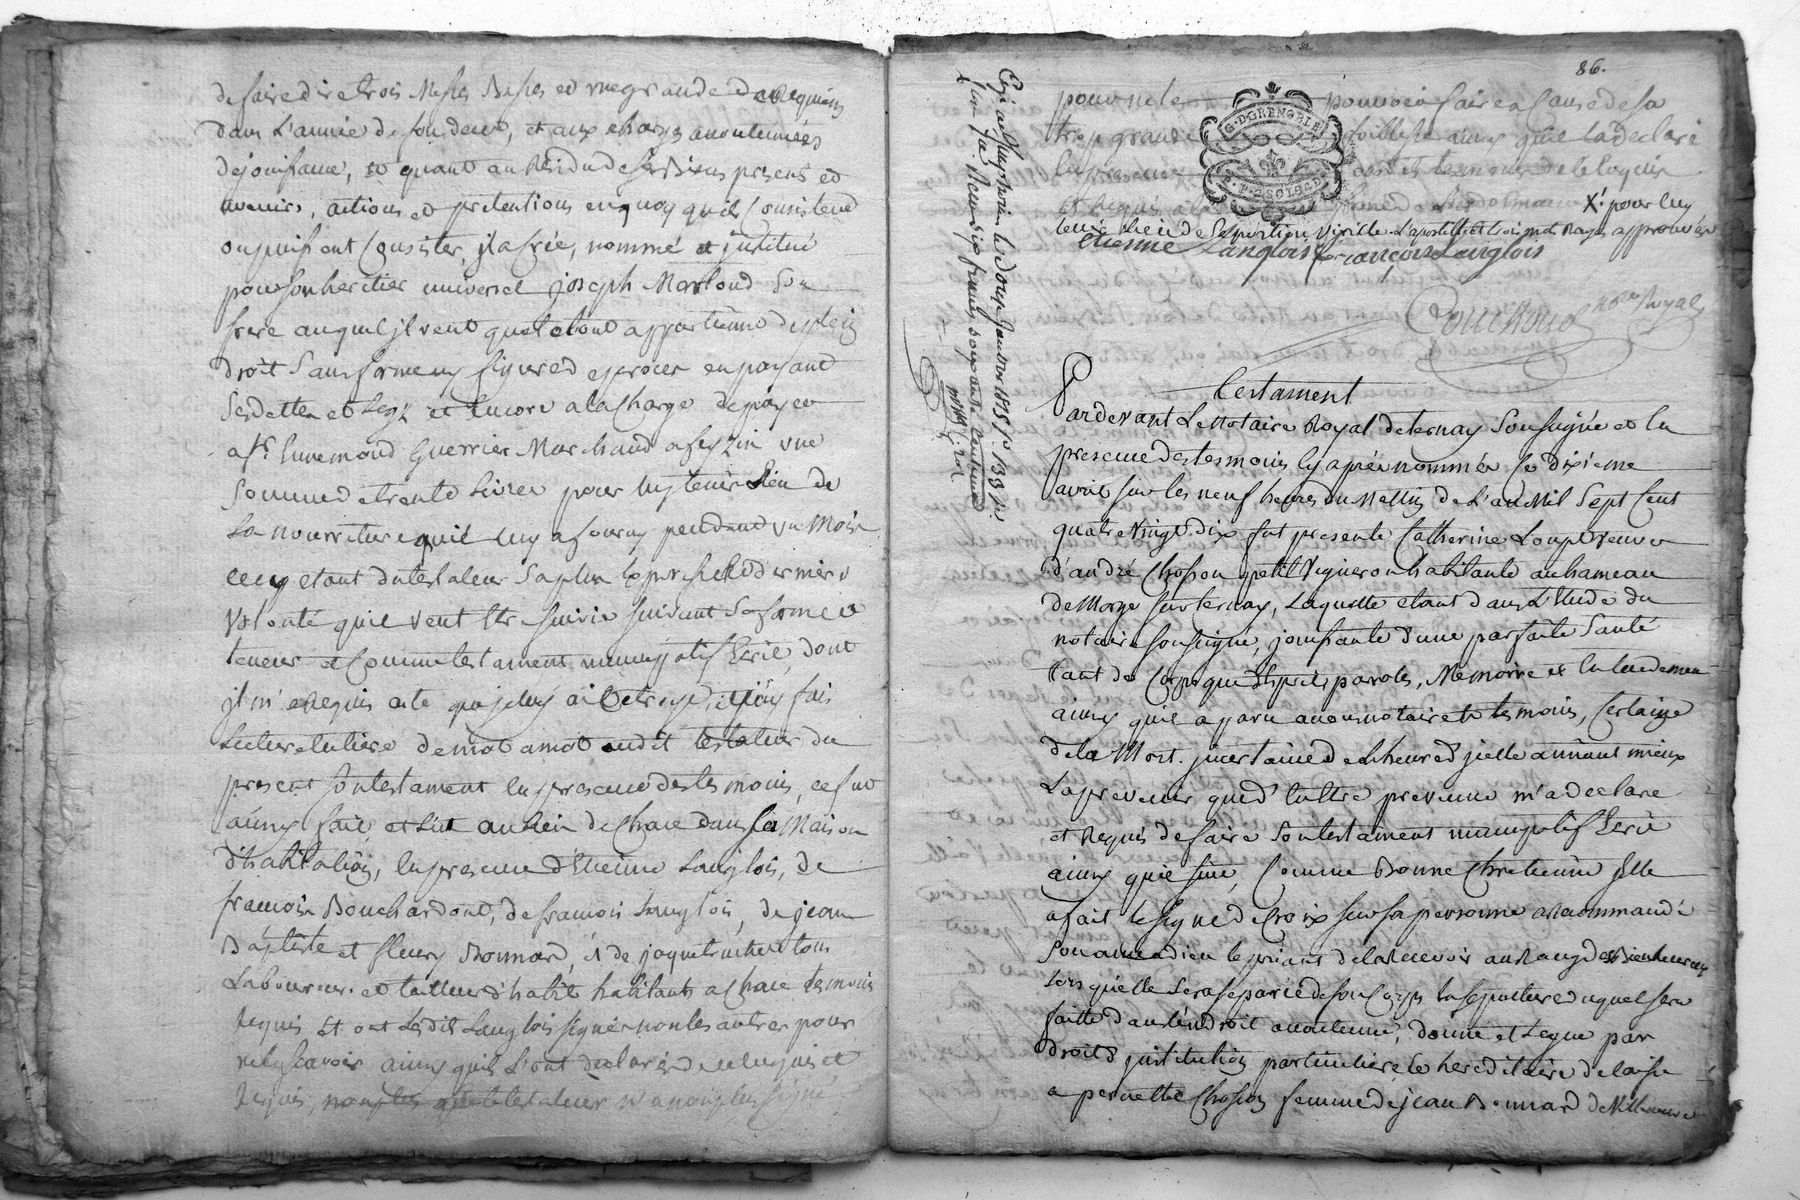 de faire dire trois Messes Basses et une grande de Requiem
dans L'année de son deces, et aux charges accoutumées
de jouissance, et quant au Residu de ses Biens presens et
avenirs, actions et pretentions en quoy quils Consistent
ou puissent Consister, il a créé, nommé et institué
pour son heritier universel joseph Marloud Son
frere auquel il veut que le tout appartienne de plein
droit Sans forme ny figure de proces en payant
Ses dettes et Legs et encore a la Charge de payer
a Sr. Ennemond Guerrier Marchand a feyzin une
Somme de trente Livres pour luy tenir Lieu de
La nourriture quil luy a fourny pendant un Mois
cecy etant du testateur Sa plus Expresse et derniere
Volonté quil veut Etre Suivie suivant Sa forme et
teneur et Comme testament nuncupatif Ecrit, dont
il m'a Requis acte que je luy ai Octroyé, et j'ay fais
Lecture entiere de mot a mot audit testateur du
present Son testament en presence des temoins, ce fut
ainsy fait et Lut au lieu de Chare dans sa Maison
d'habitation, en presence d'Etienne Langlois, de
francois Bouchardont, de francois Langlois, de jean
Baptiste et fleury Bonnard, & de jaque truchet tous
Laboureurs et tailleur d'habit habitants a Chare temoins
Requis Et ont Lesdits Langlois signés non les autres pour
ne le scavoir ainsy quils L'ont declarés de ce Enquis et
Requis, le testateur n'a non plus signé
86.
pour ne le pouvoir faire a Cause de sa
trop grande foiblesse ainsy quil la declaré
en presence desdits temoins de ce Enquis
et Requis
G. D GRENOBLE
2 SOLS 4 D
X. pour luy
tenir Lieu de Sa portion Virille. L'apostille et trois mots Rayés approuvés
Etienne Langlois francois Langlois
Couchoud no.re Royal
Testament
Pardevant Le Notaire Royal de ternay Soussigné et en
presence des temoins cy après nommés Le dixieme
avril sur les neuf heures du Mattin de L'an Mil Sept Cent
quatre Vingt dix fut presente Catherine Loup Veuve
d'andré Chosson petit Vigneron habitante au hameau
de Maye sur ternay, Laquelle etant dans L'Etude du
notaire soussigné, jouissante d'une parfaite Santé
tant de Corps que desprit, paroles, Memoire et Entendement
ainsy quil a paru a nous notaire et temoins, Certaine
de la Mort. incertaine de Lheure d'icelle aimant mieux
La prevenir que d'en Etre prevenue m'a declaré
et Requis de faire Son testament nuncupatif Ecrit
ainsy quil suit, Comme Bonne Chretienne Elle
a fait le signe de Croix sur sa personne a Recommandé
Son ame a dieu le priant de la Recevoir au Rang des Bienheureux
Lors qu'elle Sera separée de son Corps la sepulture duquel sera
faitte dans L'endroit accoutumé, donne et Legue par
droit d'institution particuliere et hereditaire delaisse
a pernette Chosson femme de jean Bonnard de Villeneuve